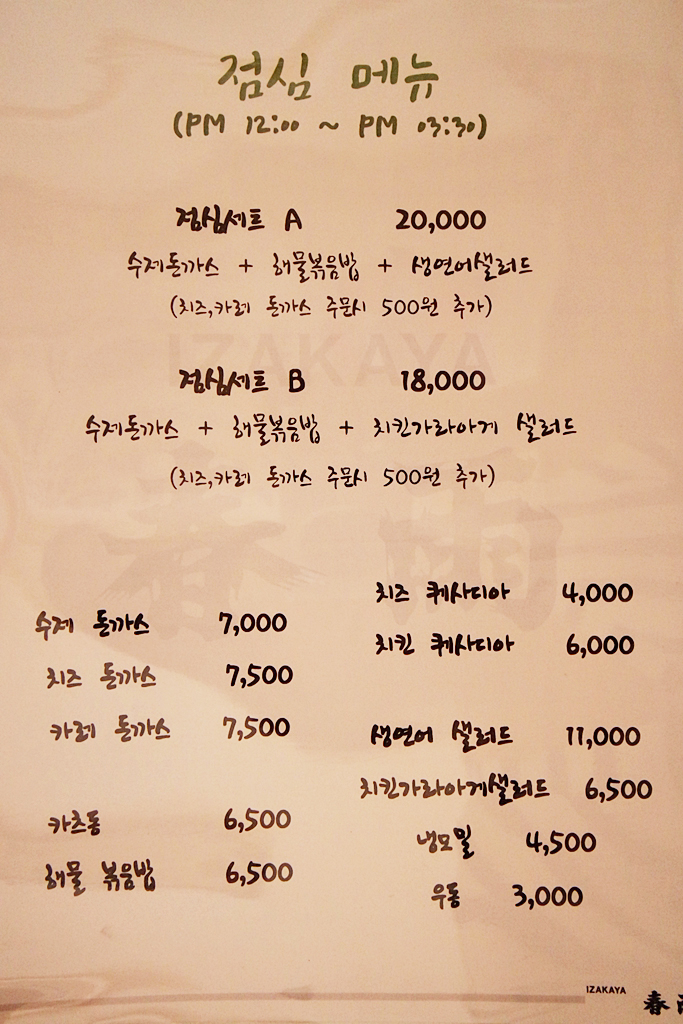 점심 메뉴
(PM 12:00 ~ PM 03:30)
점심세트 A 20,000
수제돈까스 + 해물볶음밥 + 생연어샐러드
(치즈,카레 돈까스 주문시 500원 추가)
IZAKAYA
점심세트 B 18,000
수제돈까스 + 해물볶음밥 + 치킨가라아게 샐러드
(치즈,카레 돈까스 주문시 500원 추가)
春雨
수제 돈까스 7,000
치즈 돈까스 7,500
카레 돈까스 7,500
카츠동 6,500
해물 볶음밥 6,500
치즈 퀘사디아 4,000
치킨 퀘사디아 6,000
생연어 샐러드 11,000
치킨가라아게샐러드 6,500
냉모밀 4,500
우동 3,000
IZAKAYA
春